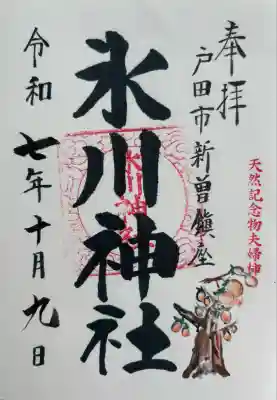 奉拝
戸田市新曽鎮座
天然記念物夫婦柿
氷川神社
氷川神社
令和七年十月九日